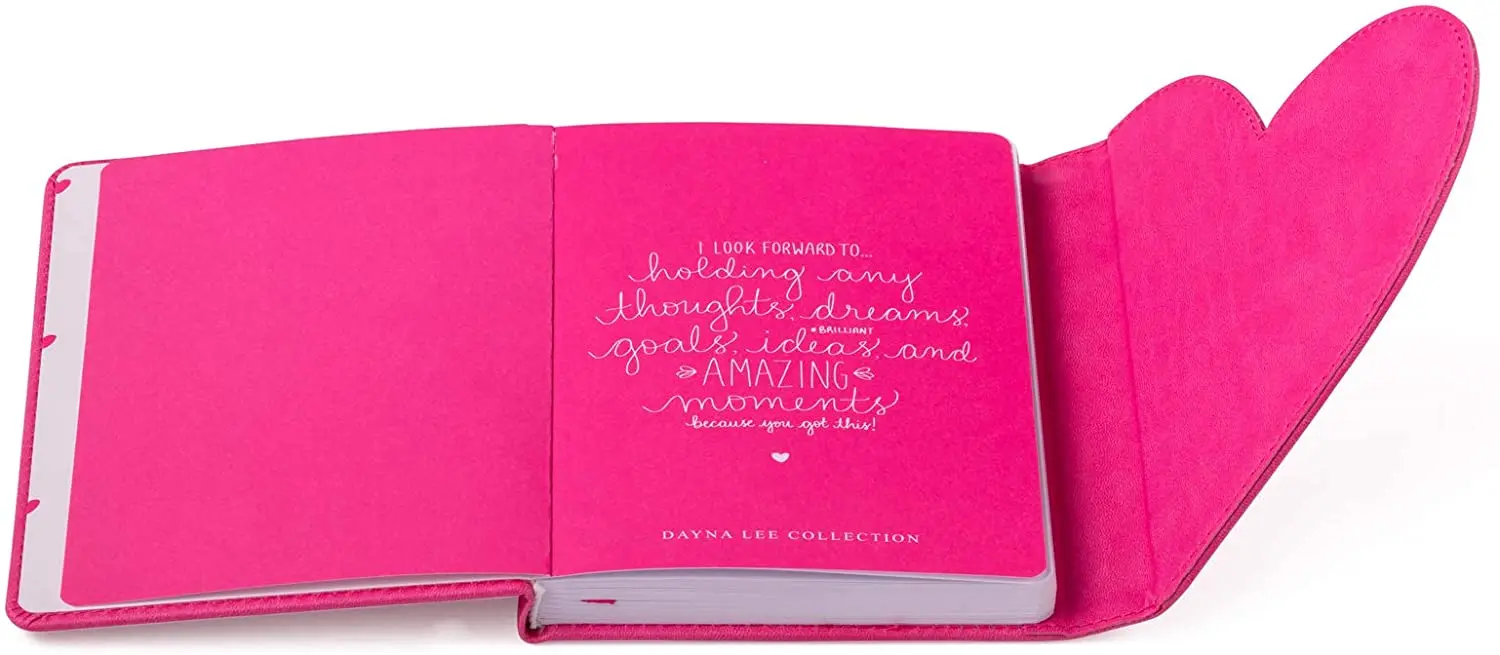 I LOOK FORWARD TO...
holding any
thoughts, dreams,
*BRILLIANT
goals, ideas, and
AMAZING
moments
because you got this!
DAYNA LEE COLLECTION